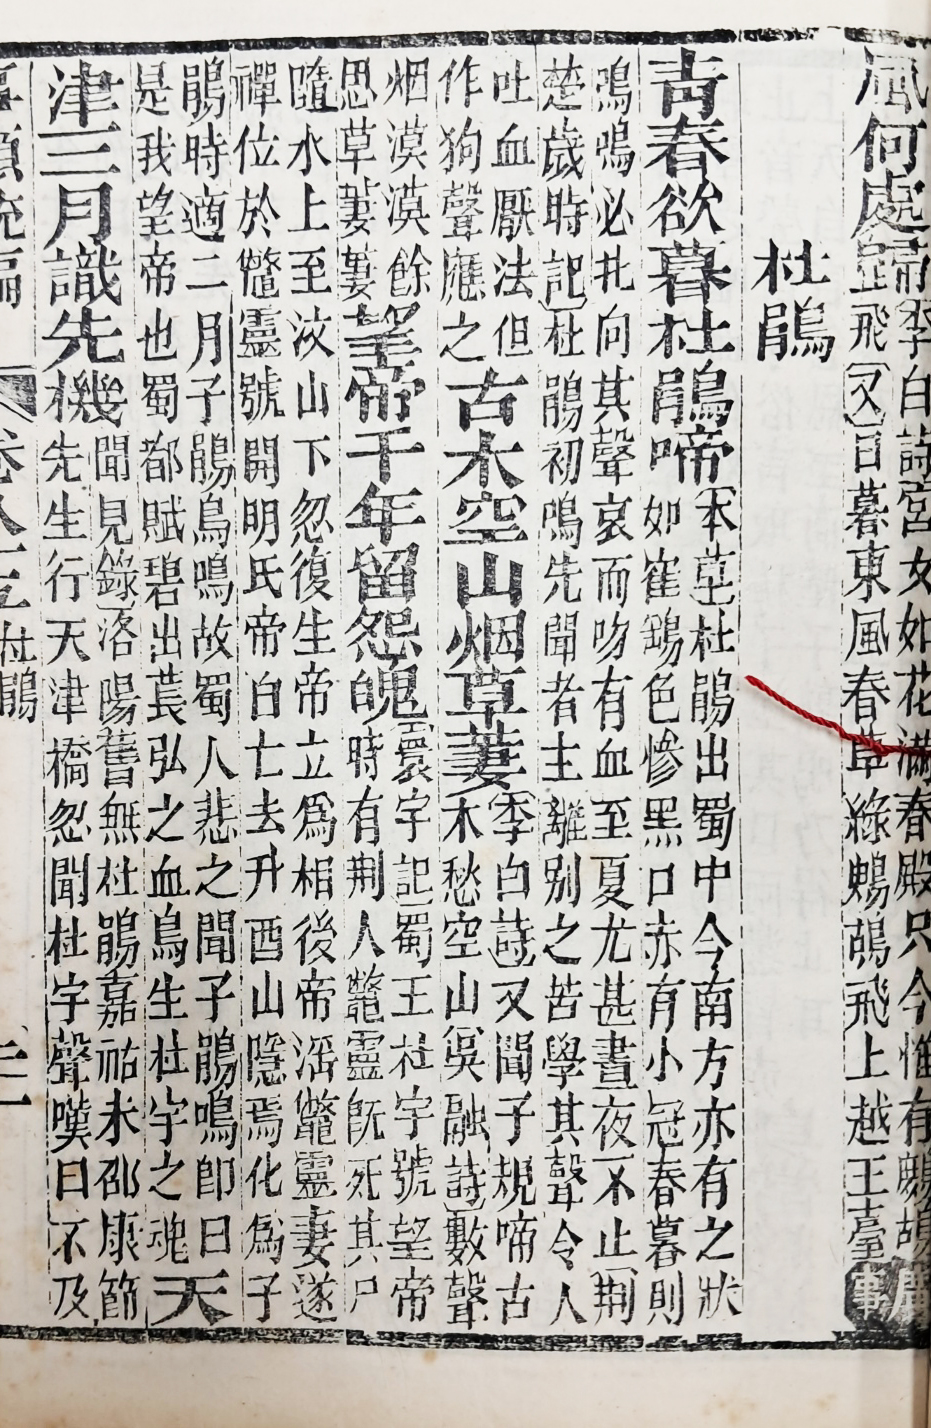 風何處歸
李白詩宮女如花滿春殿只今惟有鷓鴣
飛又日暮東風春草綠鷓鴣飛上越王臺
廣事
杜鵑
青春欲暮杜鵑啼
本草杜鵑出蜀中今南方亦有之狀
如雀鷂色慘黑口赤有小冠春暮則
鳴鳴必北向其聲哀而吻有血至夏尤甚晝夜不止荆
楚歲時記杜鵑初鳴先聞者主離别之苦學其聲令人
吐血厭法但
作狗聲應之
古木空山烟草萋
李白詩又聞子規啼古
木愁空山吳融詩數聲
烟漠漠餘
思草萋萋
望帝千年留怨魄
寰宇記蜀王杜宇號望帝
時有荆人鼈靈旣死其尸
隨水上至汶山下忽復生帝立爲相後帝淫鼈靈妻遂
禪位於鼈靈號開明氏帝自亡去升酉山隱焉化爲子
鵑時適二月子鵑鳥鳴故蜀人悲之聞子鵑鳴卽曰
是我望帝也蜀都賦碧出萇弘之血鳥生杜宇之魂
天
津三月識先機
聞見錄洛陽舊無杜鵑嘉祐末邵康節
先生行天津橋忽聞杜宇聲嘆曰不及
事類統編
杜鵑